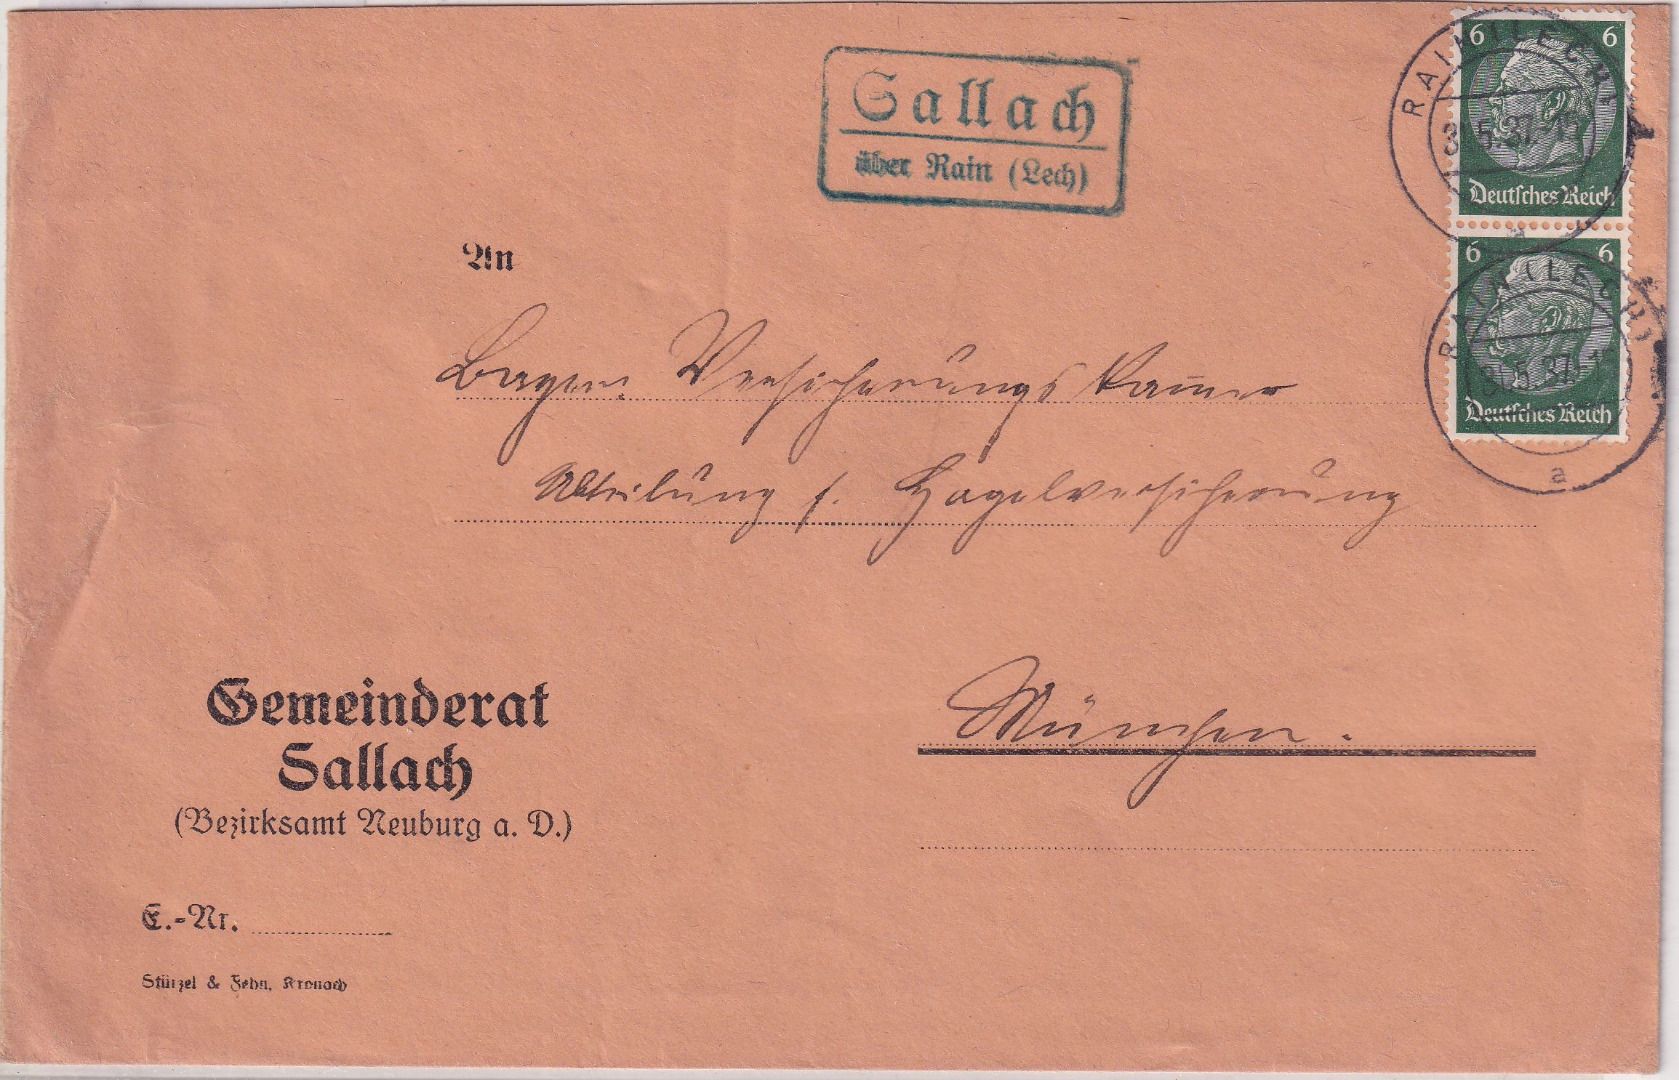 Sallach
über Rain (Lech)
6 6
RAIN (LECH)
Deutsches Reich
6 6
RAIN (LECH)
Deutsches Reich
a
An
Bayer. Versicherungskammer
Abteilung f. Hagelversicherung
München.
Gemeinderat
Sallach
(Bezirksamt Neuburg a. D.)
E.-Nr.
Stürzel & Fehn, Kronach